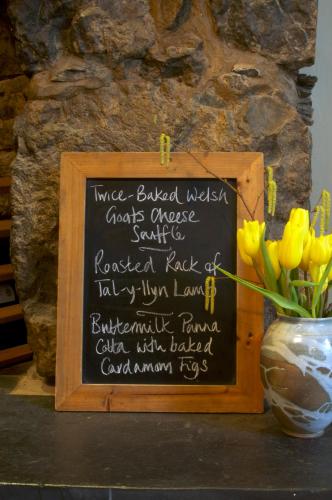 Twice-Baked Welsh
Goats Cheese
Soufflé
Roasted Rack of
Tal-y-llyn Lamb
Buttermilk Panna
Cotta with baked
Cardamom Figs